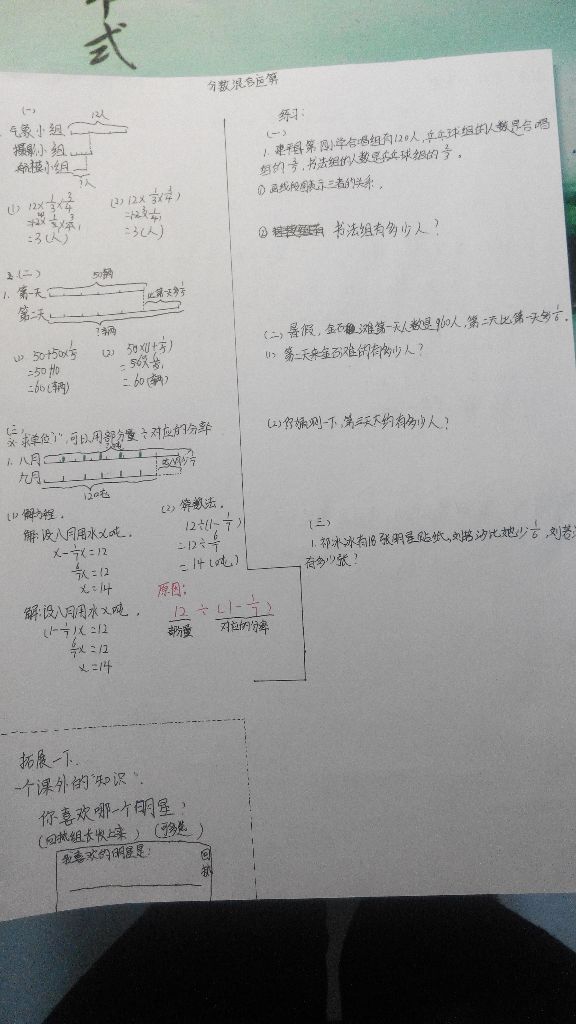 式
分数混合运算
(一)
12人
气象小组
摄影小组
航模小组
?人
(1) 12×1/3×3/4
=3(人)
(2) 12×(1/3×3/4)
=12×1/4
=3(人)
(二)
50辆
1. 第一天
比第一天多1/5
第二天
?辆
(1) 50+50×1/5
=50+10
=60(辆)
(2) 50×(1+1/5)
=50×6/5
=60(辆)
(三)
求单位"1",可以用部分量÷对应的分率
1. 八月
九月
12吨
(1) 解方程.
解:设八月用水x吨.
x-1/7x=12
6/7x=12
x=14
解:设八月用水x吨.
(1-1/7)x=12
6/7x=12
x=14
(2) 算数法.
12÷(1-1/7)
=12÷6/7
=14(吨)
原因:
12÷(1-1/7)
部分量 对应的分率
拓展一下.
一个课外的"知识".
你喜欢哪一个明星?
(回执组长收上来) (可多选)
我喜欢的明星是:
回执
练习:
(一)
1. 建平县第四小学合唱组有120人,乒乓球组的人数是合唱
组的
,书法组的人数是乒乓球组的
① 画线段图表示三者的关系.
② 书法组有多少人?
(二) 暑假,金石滩第一天人数是960人,第二天比第一天多1/6.
(1) 第二天来金石滩的有多少人?
(2) 你猜测一下,第三天大约有多少人?
(三)
1. 祁冰冰有18张明星贴纸,刘若汐比她少1/6,刘若
有多少张?